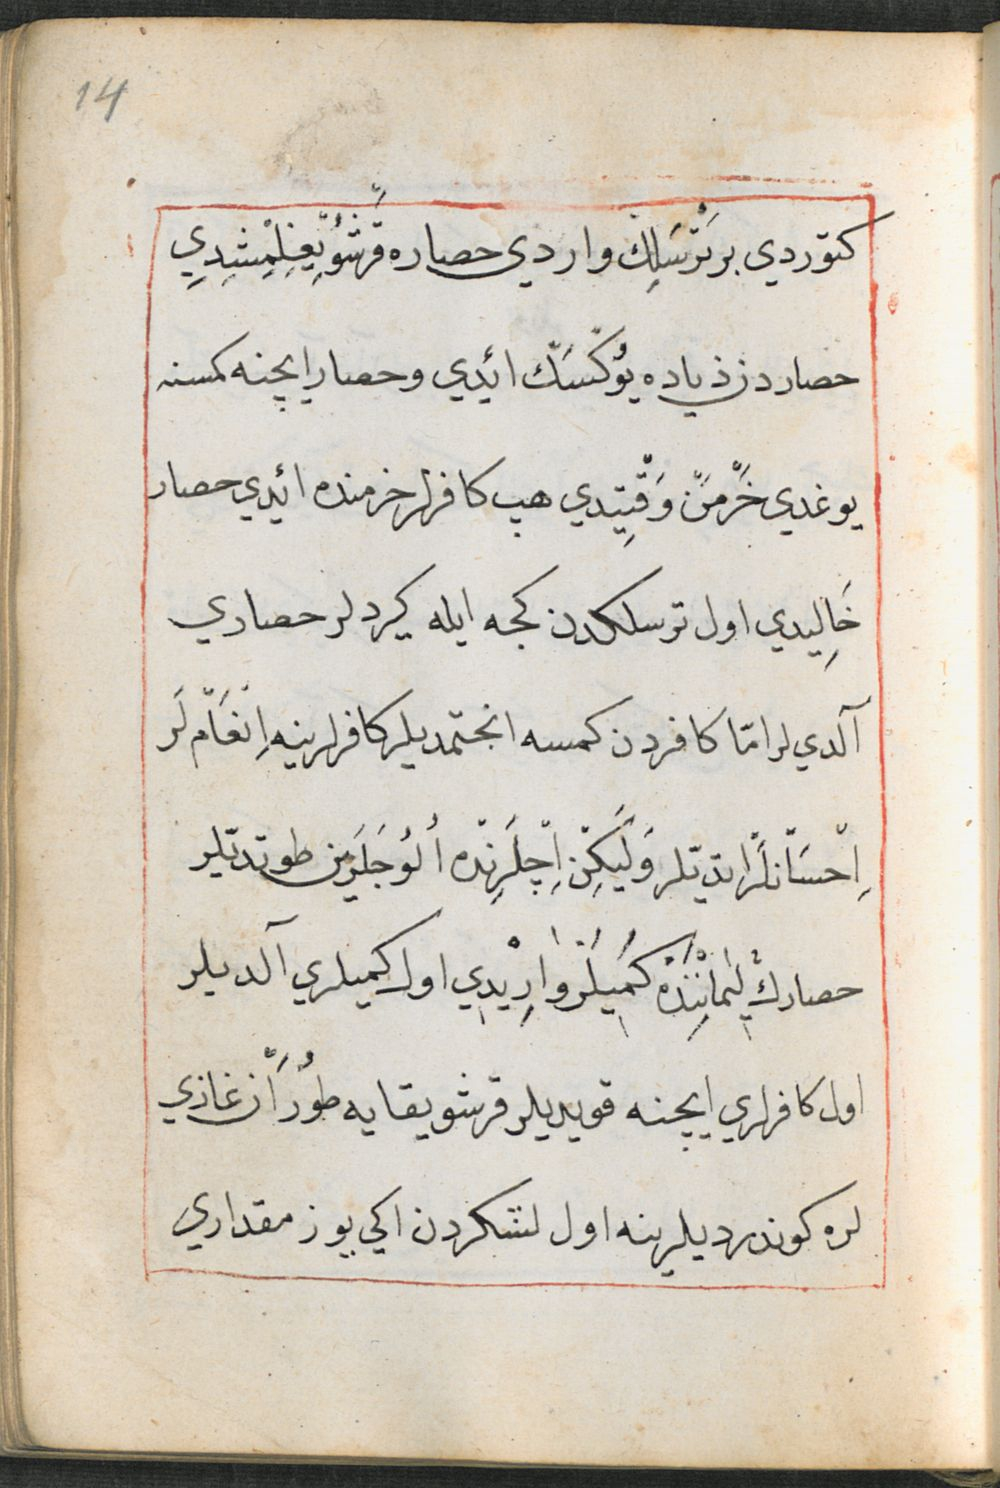 14
كتوردي بر تَرْسَلِك واردي حصاره قَرْشُو يِغِلْمِشِدِي
حصاردن ذياده يُوكْسَكْ ائدي وحصار ايچنه كمسنه
يوغدي خَرْمَنْ وَقْتِيدي هب كافرلر خرمنده ائدي حصار
خَالِيدي اول ترسلكدن كجه ايله كيردلر حصاري
آلديلر امّا كافردن كمسه انجتمديلر كافرلرينه اِنْعَامْ لَر
اِحْسَانْلَر ايتديلر وَلَيكِنْ اِچْلَرِنْدَه اُلُوجَلَرِن طوتدىلر
حصارك لِيمَانِنْدَه كَمِيلَر وارِيْدِي اول كميلري آلديلر
اول كافرلري ايچنه قويديلر قرشو يقايه طُورَانْ غازي
لره كوندرديلر ينه اول لشكردن اكي يوز مقداري